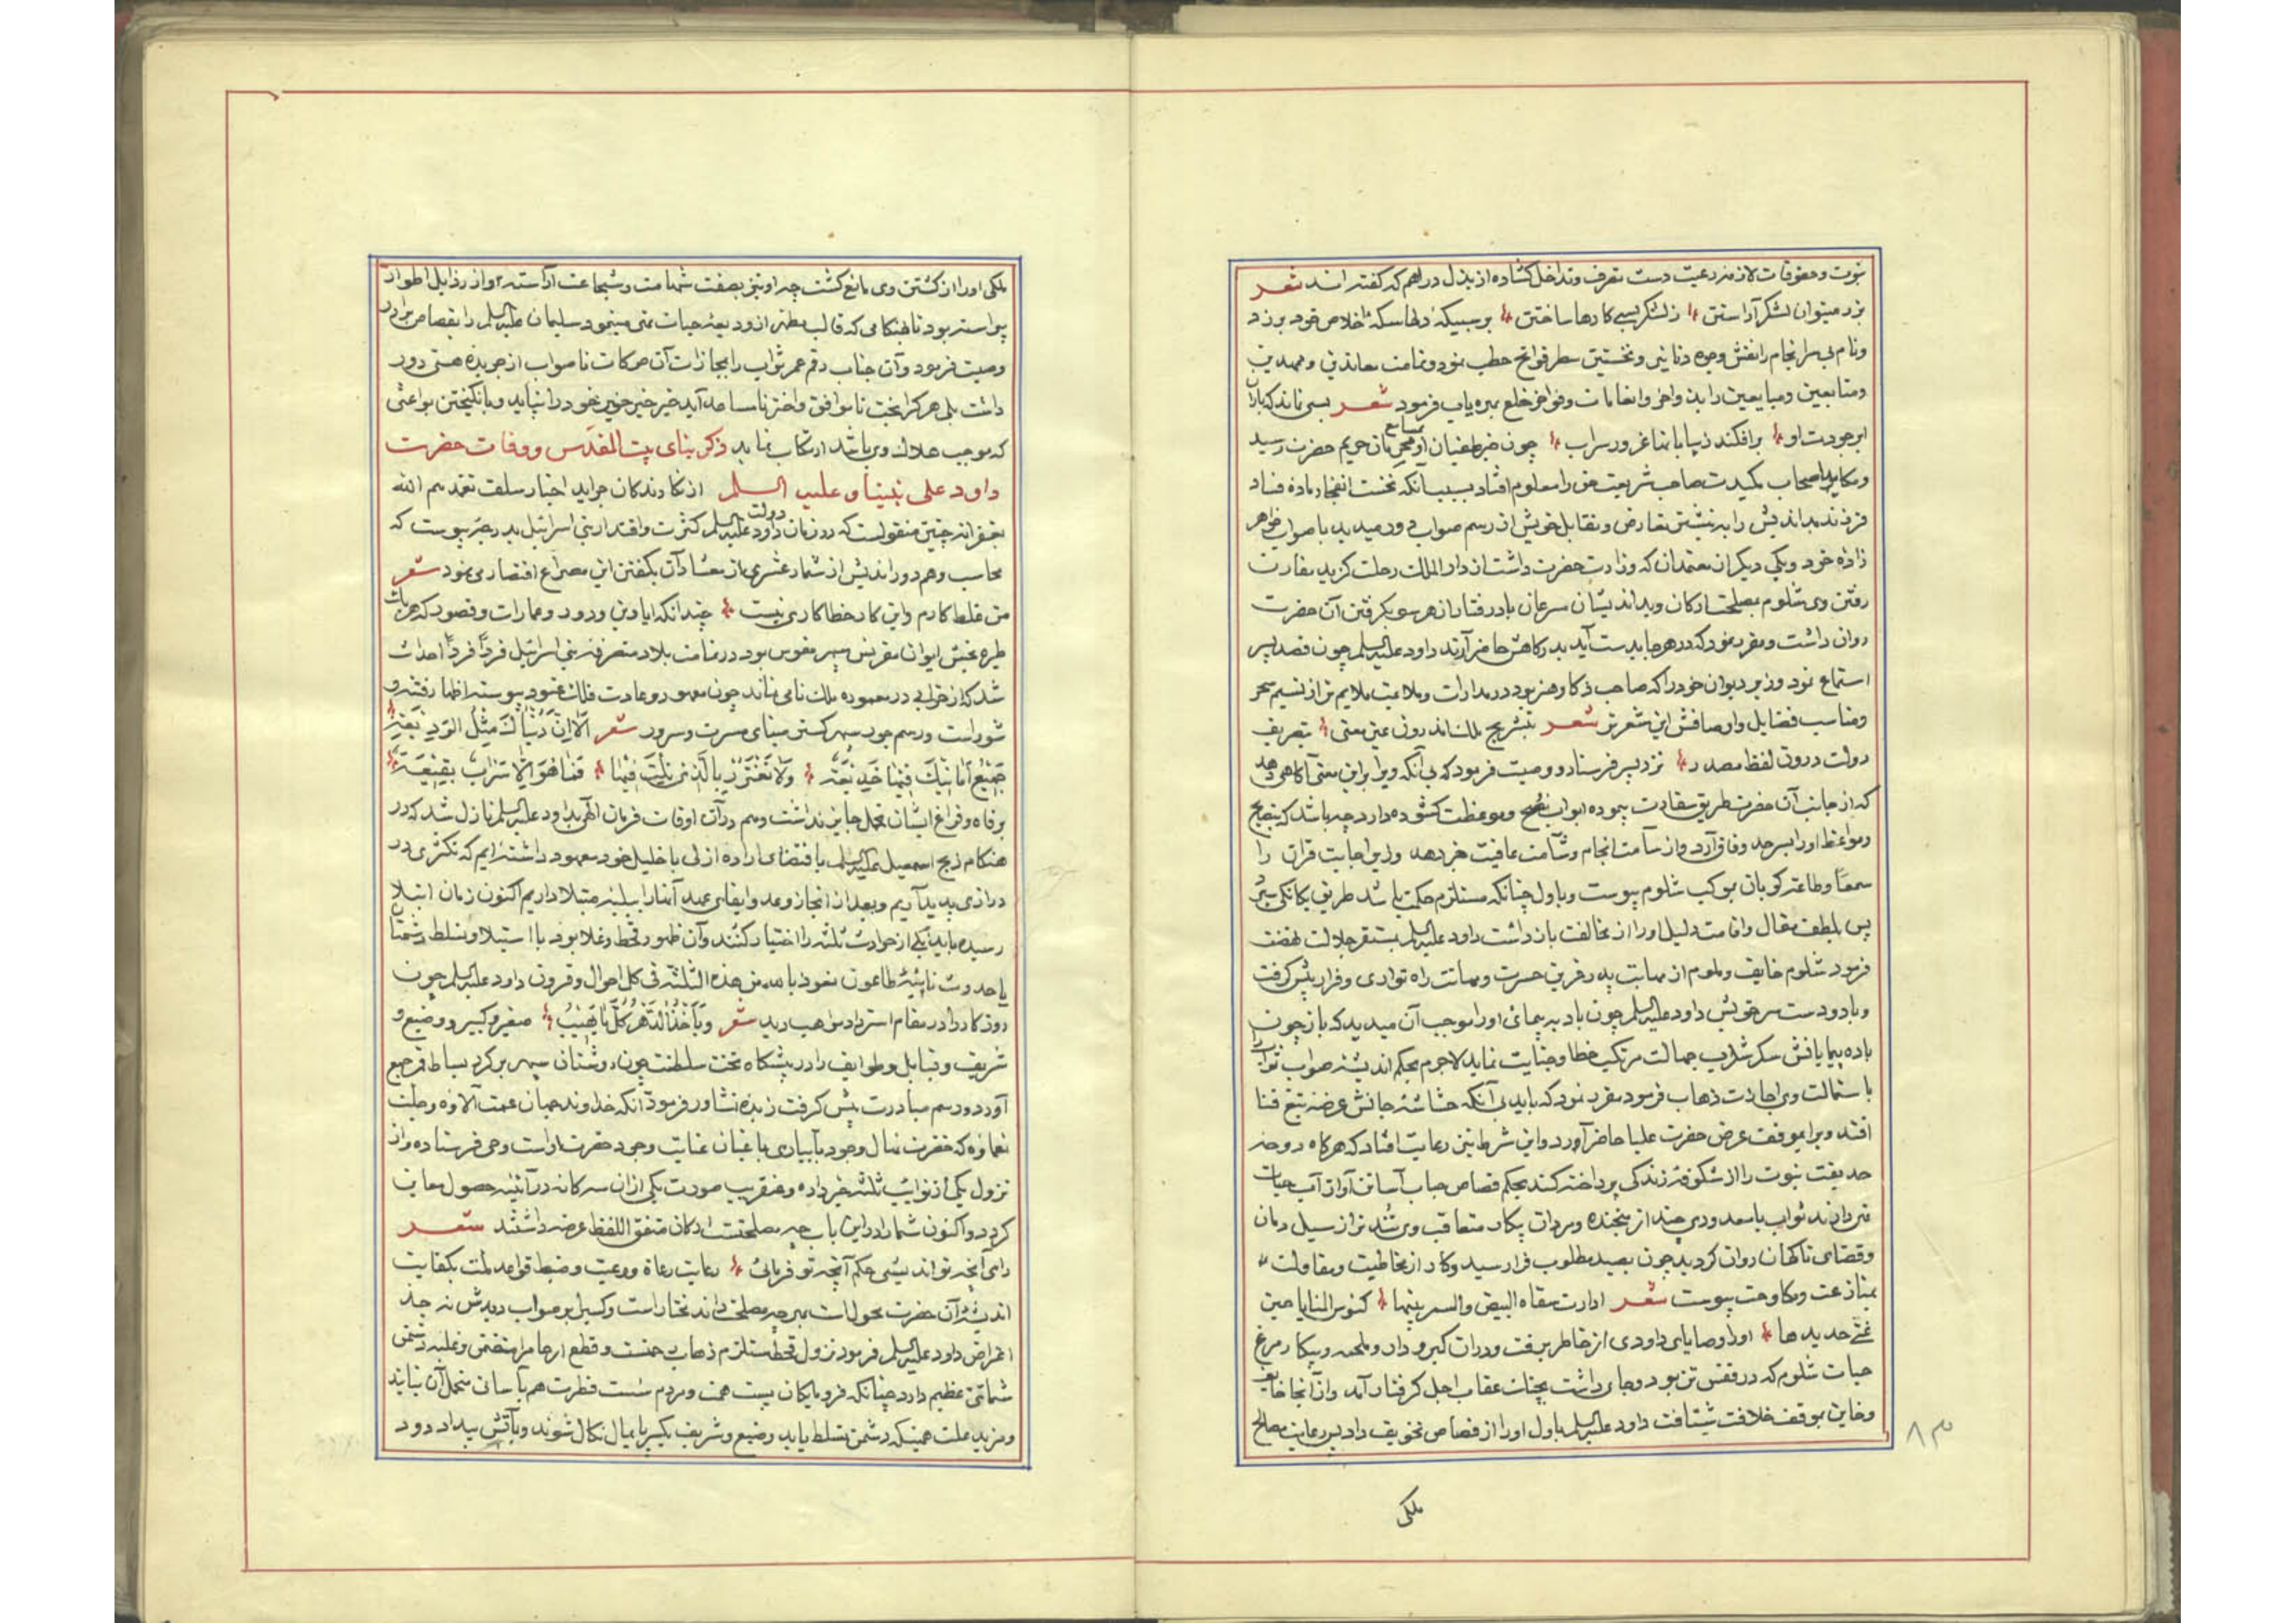 نبوت و حقوقات لازمه رعیت دست تصرف و تداخل کشاده از بذل دراهم که گفته اند شعر
بزر میتوان لشکر آراستن زلشکر بسی کارها ساختن بر سبیکه دلها سکه اخلاص خود بر زد
و نام بی سرانجام را نقش وجوه دنانیر و نخستین سطر فواتح خطب نمود و تمامت معاندین و ممهدین
و متابعین و مبایعین را بذخایر و انعامات وفواخر خلع بهره یاب فرمود شعر بسی نماند که باران
ابر جودت او برافکند ز بیابانها غرور سراب چون خبر طغیان او بمسامع محرمان حریم حضرت رسید
و مکاید اصحاب مکیدت صاحب شریعت حق را معلوم افتاد بسبب آنکه نخست انفجار ماده فساد
فرزند بداندیش را به ننشستن تعارض و تقابل خویش از رسم صواب دور میدید با صواب خواهر
زاده خود و یکی دیگر از معتمدان که وزارت حضرت داشت از دار الملک رحلت گزید مقارن
رفتن وی شلوم بمصلحت ارکان و بداندیشان سرعان بادرفتار از هر سو بگرفتن آن حضرت
روان داشت و مقرر نمود که در هر جا بدست آید بدرکاهش حاضر آرند داود علیه السلم چون قصد پسر
استماع نمود وزیر دیوان خود را که صاحب ذکا و هنر بود در مدارات و ملاعبت ملایم تر از نسیم سحر
و مناسب فضایل و اوصافش این شعر تر شعر بتشریح ملک اندرون عین معنی بتصریف
دولت درون لفظ مصدر نزد پسر فرستاد و وصیت فرمود که بی آنکه ویرا بر این معنی آگاهی دهد
که از جانب آن حضرت طریق مفارقت پیموده ابواب نصح و موعظت گشوده دارد چه باشد که بنصایح
و مواعظ او را بسرحد وفاق آرد و از سآمت انجام و شآمت عاقبت خبر دهد وزیر اجابت قران را
سمعا و طاعة گویان بموکب شلوم پیوست و باول چنانکه مستلزم حکمت باشد طریق یکانکی سپرد
پس بلطف مقال و اقامت دلیل او را از مخالفت باز داشت داود علیه السلم بمستقر جلالت نهضت
فرمود شلوم خایف و ملوم از مهابت پدر قرین حسرت و مهانت راه تواری و فرار پیش گرفت
و بادودست سرخویش داود علیه السلم چون باد به پیمائی او را موجب آن میدید که باز چون
باده پیمایانش سکر شراب جهالت مرتکب خطا و جنایت نماید لاجرم بحکم اندیشه صواب ثواب را
باستمالت وی اجازت ذهاب فرمود مقرر نمود که باید بی آنکه حشاشه جانش عرضه تیغ فنا
افتد ویرا بموقف عرض حضرت علیا حاضر آورد و این شرط نیز رعایت افتاد که هرگاه دوحه
حدیقت نبوت را از شکوفه زندگی پرداخته کند بحکم قصاص حباب آسا تن آواز آب حیات
تهی داند ثواب با معدودی چند از پنجنده و مردان پیکار متعاقب وی شد تر از سیل دمان
و قضای ناگهان روان گردید چون بصید مطلوب فرا رسید و کار از مخاطبت و مقاولت
بمنازعت و مکاوحت پیوست شعر ادارت سقاه البیض والسمر بینها کئوس المنایا حین
غنی حدیدها او را وصایای داودی از خاطر برفت و در اثناء گیر و دار و ملحمه و پیکار مرغ
حیات شلوم که در قفس تن بود و جای داشت بچنگ عقاب اجل گرفتار آمد و از آنجا خایف
و خاین بموقف خلافت شتافت داود علیه السلم باول او را از قصاص تخویف داد پس رعایت مصالح
۸۳
ملکی
ملکی او را از کشتن وی مانع گشت چه او نیز بصفت شهامت و شجاعت آراسته بود از رذایل اطوار
پیراسته بود تا بهنگامی که قالب مطهر از ودیعه حیات تهی مینمود سلیمان علیه السلم را بقصاص برادر
وصیت فرمود و آن جناب رقم عمر ثواب را بمجازات آن حرکات ناصواب از جریده هستی دور
داشت بلی هر کرا بخت ناموافق و اختر نامساعد آید خیر خیر خون خود را نپاید و بانگیختن بواعثی
که موجب هلاک وی باشد ارتکاب نماید ذکر بنای بیت المقدس و وفات حضرت
داود علی نبینا و علیه السلم از نگارندگان جراید اخبار سلف تغمدهم الله
بغفرانه چنین منقولست که در زمان دولت داود علیه السلم کثرت و اقتدار بنی اسرائیل بدرجه پیوست که
محاسب وهم دوراندیش از شمار عشری از معشار آن بگفتن این مصراع اقتصار می نمود شعر
من غلط کارم و این کار خطا کاری نیست چندانکه ایاوین و دور و عمارات و قصور که هر یک
طیره بخش ایوان مقرنس سپهر مقوس بود در تمامت بلاد متصرفه بنی اسرائیل فردا فردا احداث
شد که از خرابی در معموره ملک نامی نماند چون معهود و عادت فلک عنود پیوسته اظهار فتنه و
شور است و رسم جور سپهر کستن مبنای مسرت و سرور شعر الا ان دنیاک مثل الودیعة
جمیع امانیک فیها خدیعة ولا تغترر بالذی نلت فیها فما هو الا سراب بقیعة
رفاه و فراغ ایشان تحمل جایز نداشت و هم در آن اوقات فرمان الهی بداود علیه السلم نازل شد که در
هنگام ذبح اسمعیل علیه السلم باقتضای اراده ازلی با خلیل خود معهود داشته ایم که تکثری در
درازی پدید آریم و بعد از انجاز وعد و ایفای عهد آنها را ببلیه مبتلا داریم اکنون زمان ابتلا
رسیده باید یکی از حوادث ثلثه را اختیار کنند و آن ظهور قحط و غلا بود یا استیلا و تسلط دشمنان
یا حدوث نایبه طاعون نعوذ بالله من هذه الثلثة فی کل احوال و قرون داود علیه السلم چون
روزگار را در مقام استرداد مواهب دید شعر و یأخذ الدهر کلما یهب صغیر و کبیر و وضیع و
شریف و قبایل و طوایف را در پیشگاه تخت سلطنت چون روشنان سپهر بر گرد بساط قمر جمع
آورد و رسم مبادرت پیش گرفت زبده تشاور فرمود آنکه خداوند جهان عمت آلاوه و جلت
نعماوه که خضرت نهال وجود بآبیاری باغبان عنایت وجود حضرت اوست وحی فرستاده و از
نزول یکی از نوایب ثلثه خبر داده و عنقریب صورت یکی از آن سه گانه در آئینه حصول معاین
گردد و اکنون شما را در این باب چه مصلحتست ارکان متفق اللفظ عرضه داشتند شعر
رای آنچه تو اندیشی حکم آنچه تو فرمائی رعایت رعاة و رعیت و ضبط قواعد ملت بکفایت
اندیشه آن حضرت محولات بهر چه مصلحت داند مختار است و کسیرا بر صواب دیدش نه جز
اغراض داود علیه السلم فرمود نزول قحط مستلزم ذهاب حمیت و قطع ارحام را مقتضی و غلبه دشمن
شماتتی عظیم دارد چنانکه فرومایگان پست همت و مردم سست فطرت هم بآسانی متحمل آن نیایند
و مزید علت همینکه دشمن تسلط یابد وضیع و شریف یکسر پایمال نکال شوند و بآتش بیداد دود